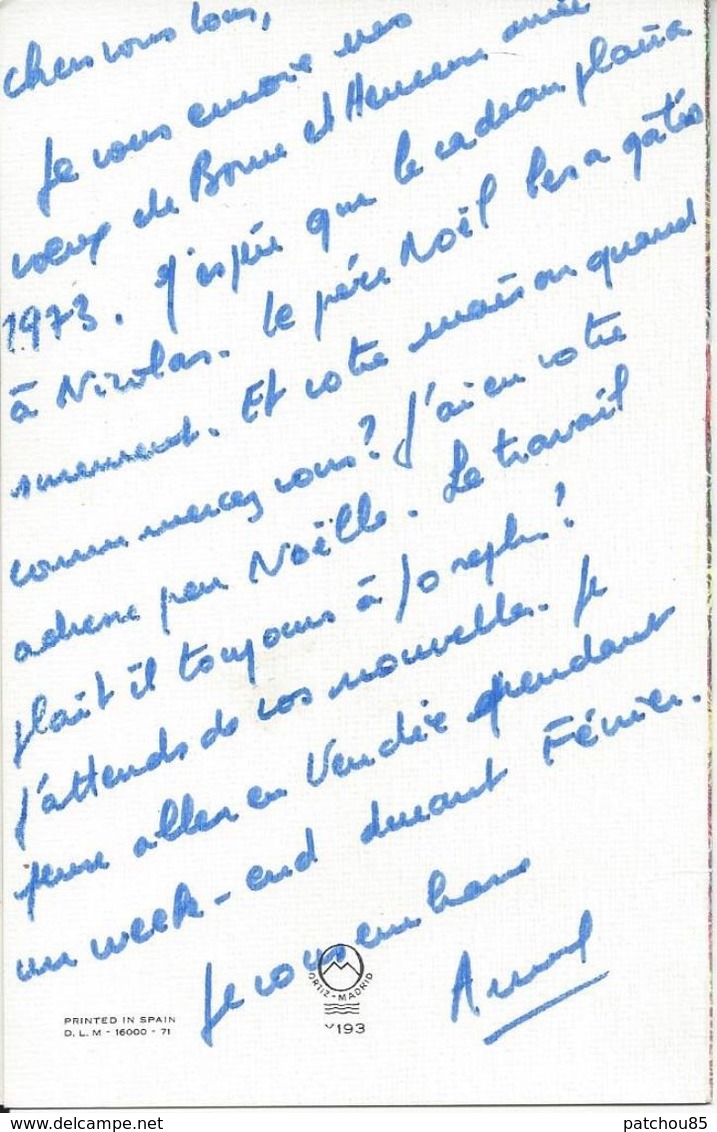 chers vous tous,
Je vous envoie mes
voeux de Bonne et Heureuse année
1973. J'espère que le cadeau plaira
à Nicolas. Le père Noël les a gâtés
surement. Et votre maison quand
commencez vous? J'ai eu votre
adresse par Noëlle. Le travail
plaît il toujours à Joseph?
J'attends de vos nouvelles. Je
pense aller en Vendée pendant
un week-end durant Février.
Je vous embrasse
ORTIZ-MADRID
PRINTED IN SPAIN
D. L. M - 16000 - 71
193
patchou85